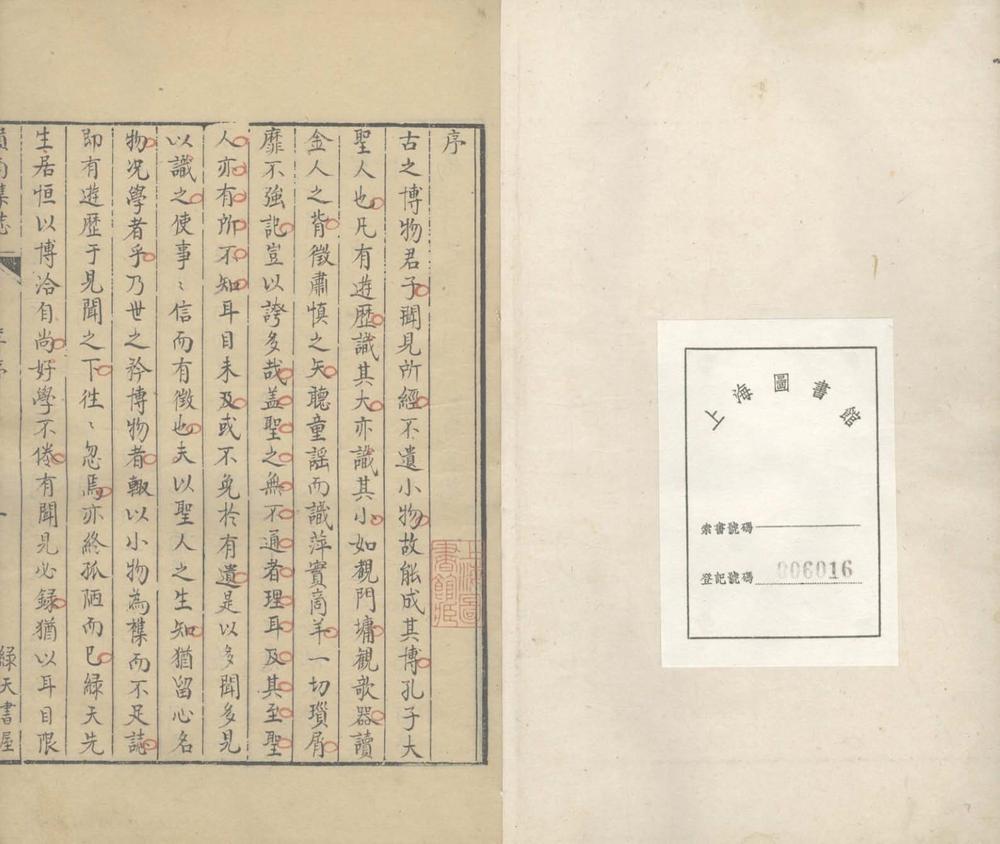 上海圖書館
索書號碼
登記號碼 806016
序
古之博物君子聞見所經不遺小物故能成其博孔子大
聖人也凡有遊歷識其大亦識其小如觀門墉觀欹器讀
金人之背徵肅慎之矢聽童謡而識萍實商羊一切瑣屑
靡不強記豈以誇多哉蓋聖之無不通者理耳及其至聖
人亦有所不知耳目未及或不免於有遺是以多聞多見
以識之使事〻信而有徵也夫以聖人之生知猶留心名
物況學者乎乃世之矜博物者輙以小物為樸而不足誌
即有遊歷于見聞之下徃〻忽焉亦終孤陋而已緑天先
生居恒以博洽自尚好學不倦有聞見必録猶以耳目限
南集誌
序
一
緑天書屋
上海圖書館藏